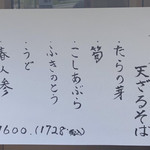 天ざるそば
たらの芽
筍
こしあぶら
ふきのとう
うど
春人参
1600.(1728税込)